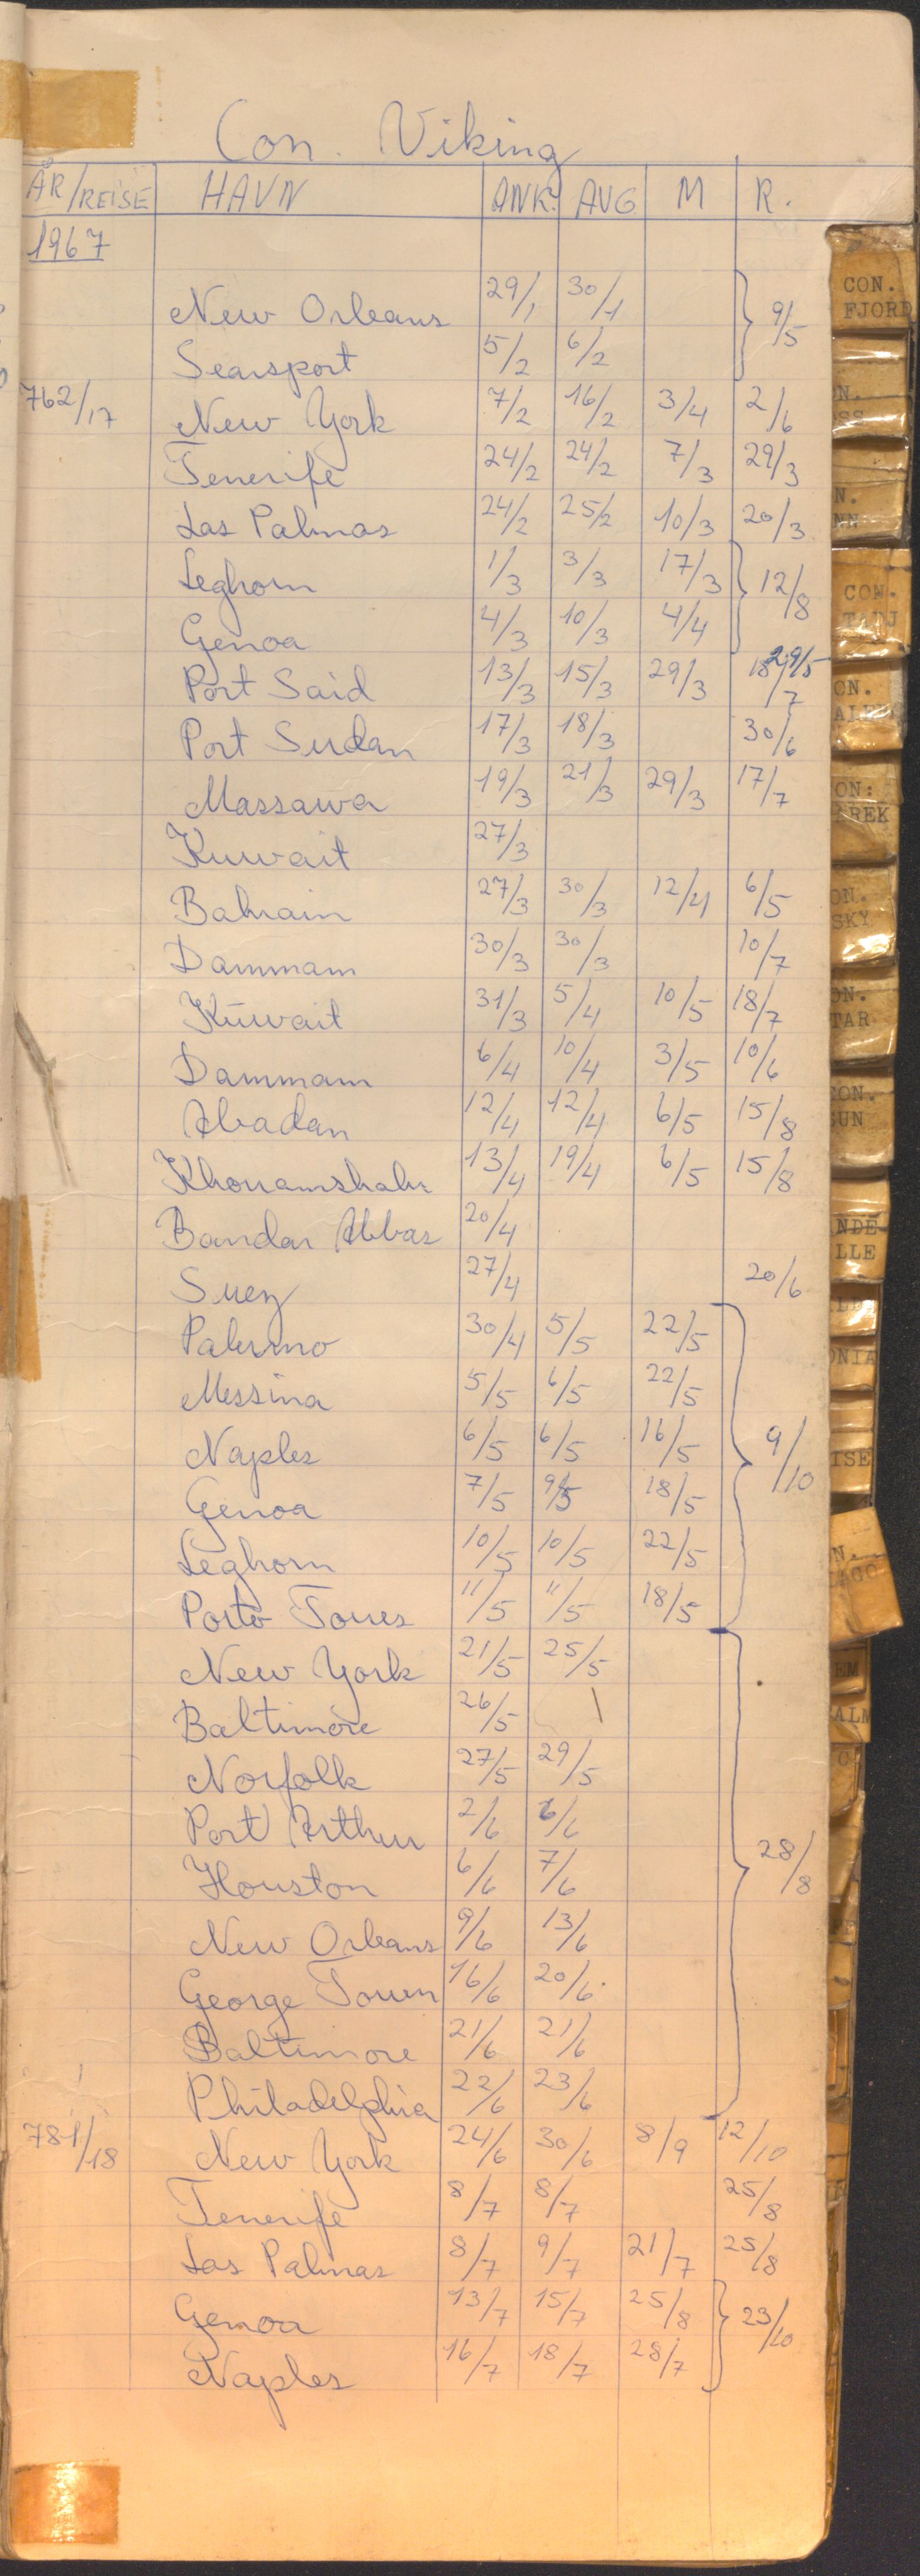 Con. Viking
ÅR/REISE HAVN ANK. AVG M R.
1967
New Orleans 29/1 30/1 9/5
Searsport 5/2 6/2
762/17 New York 7/2 16/2 3/4 2/6
Tenerife 24/2 24/2 7/3 29/3
Las Palmas 24/2 25/2 10/3 20/3
Leghorn 1/3 3/3 17/3 12/8
Genoa 4/3 10/3 4/4
Port Said 13/3 15/3 29/3 18/7 29/5
Port Sudan 17/3 18/3 30/6
Massawa 19/3 21/3 29/3 17/7
Kuwait 27/3
Bahrain 27/3 30/3 12/4 6/5
Dammam 30/3 30/3 10/7
Kuwait 31/3 5/4 10/5 18/7
Dammam 6/4 10/4 3/5 10/6
Abadan 12/4 12/4 6/5 15/8
Khorramshahr 13/4 19/4 6/5 15/8
Bandar Abbas 20/4
Suez 27/4 20/6
Palermo 30/4 5/5 22/5
Messina 5/5 6/5 22/5
Naples 6/5 6/5 16/5 9/10
Genoa 7/5 9/5 18/5
Leghorn 10/5 10/5 22/5
Porto Torres 11/5 11/5 18/5
New York 21/5 25/5
Baltimore 26/5 \
Norfolk 27/5 29/5
Port Arthur 2/6 6/6
Houston 6/6 7/6 28/8
New Orleans 9/6 13/6
George Town 16/6 20/6
Baltimore 21/6 21/6
Philadelphia 22/6 23/6
781/18 New York 24/6 30/6 8/9 12/10
Tenerife 8/7 8/7 25/8
Las Palmas 8/7 9/7 21/7 25/8
Genoa 13/7 15/7 25/8 23/10
Naples 16/7 18/7 28/7
CON.
FJORD
CON.